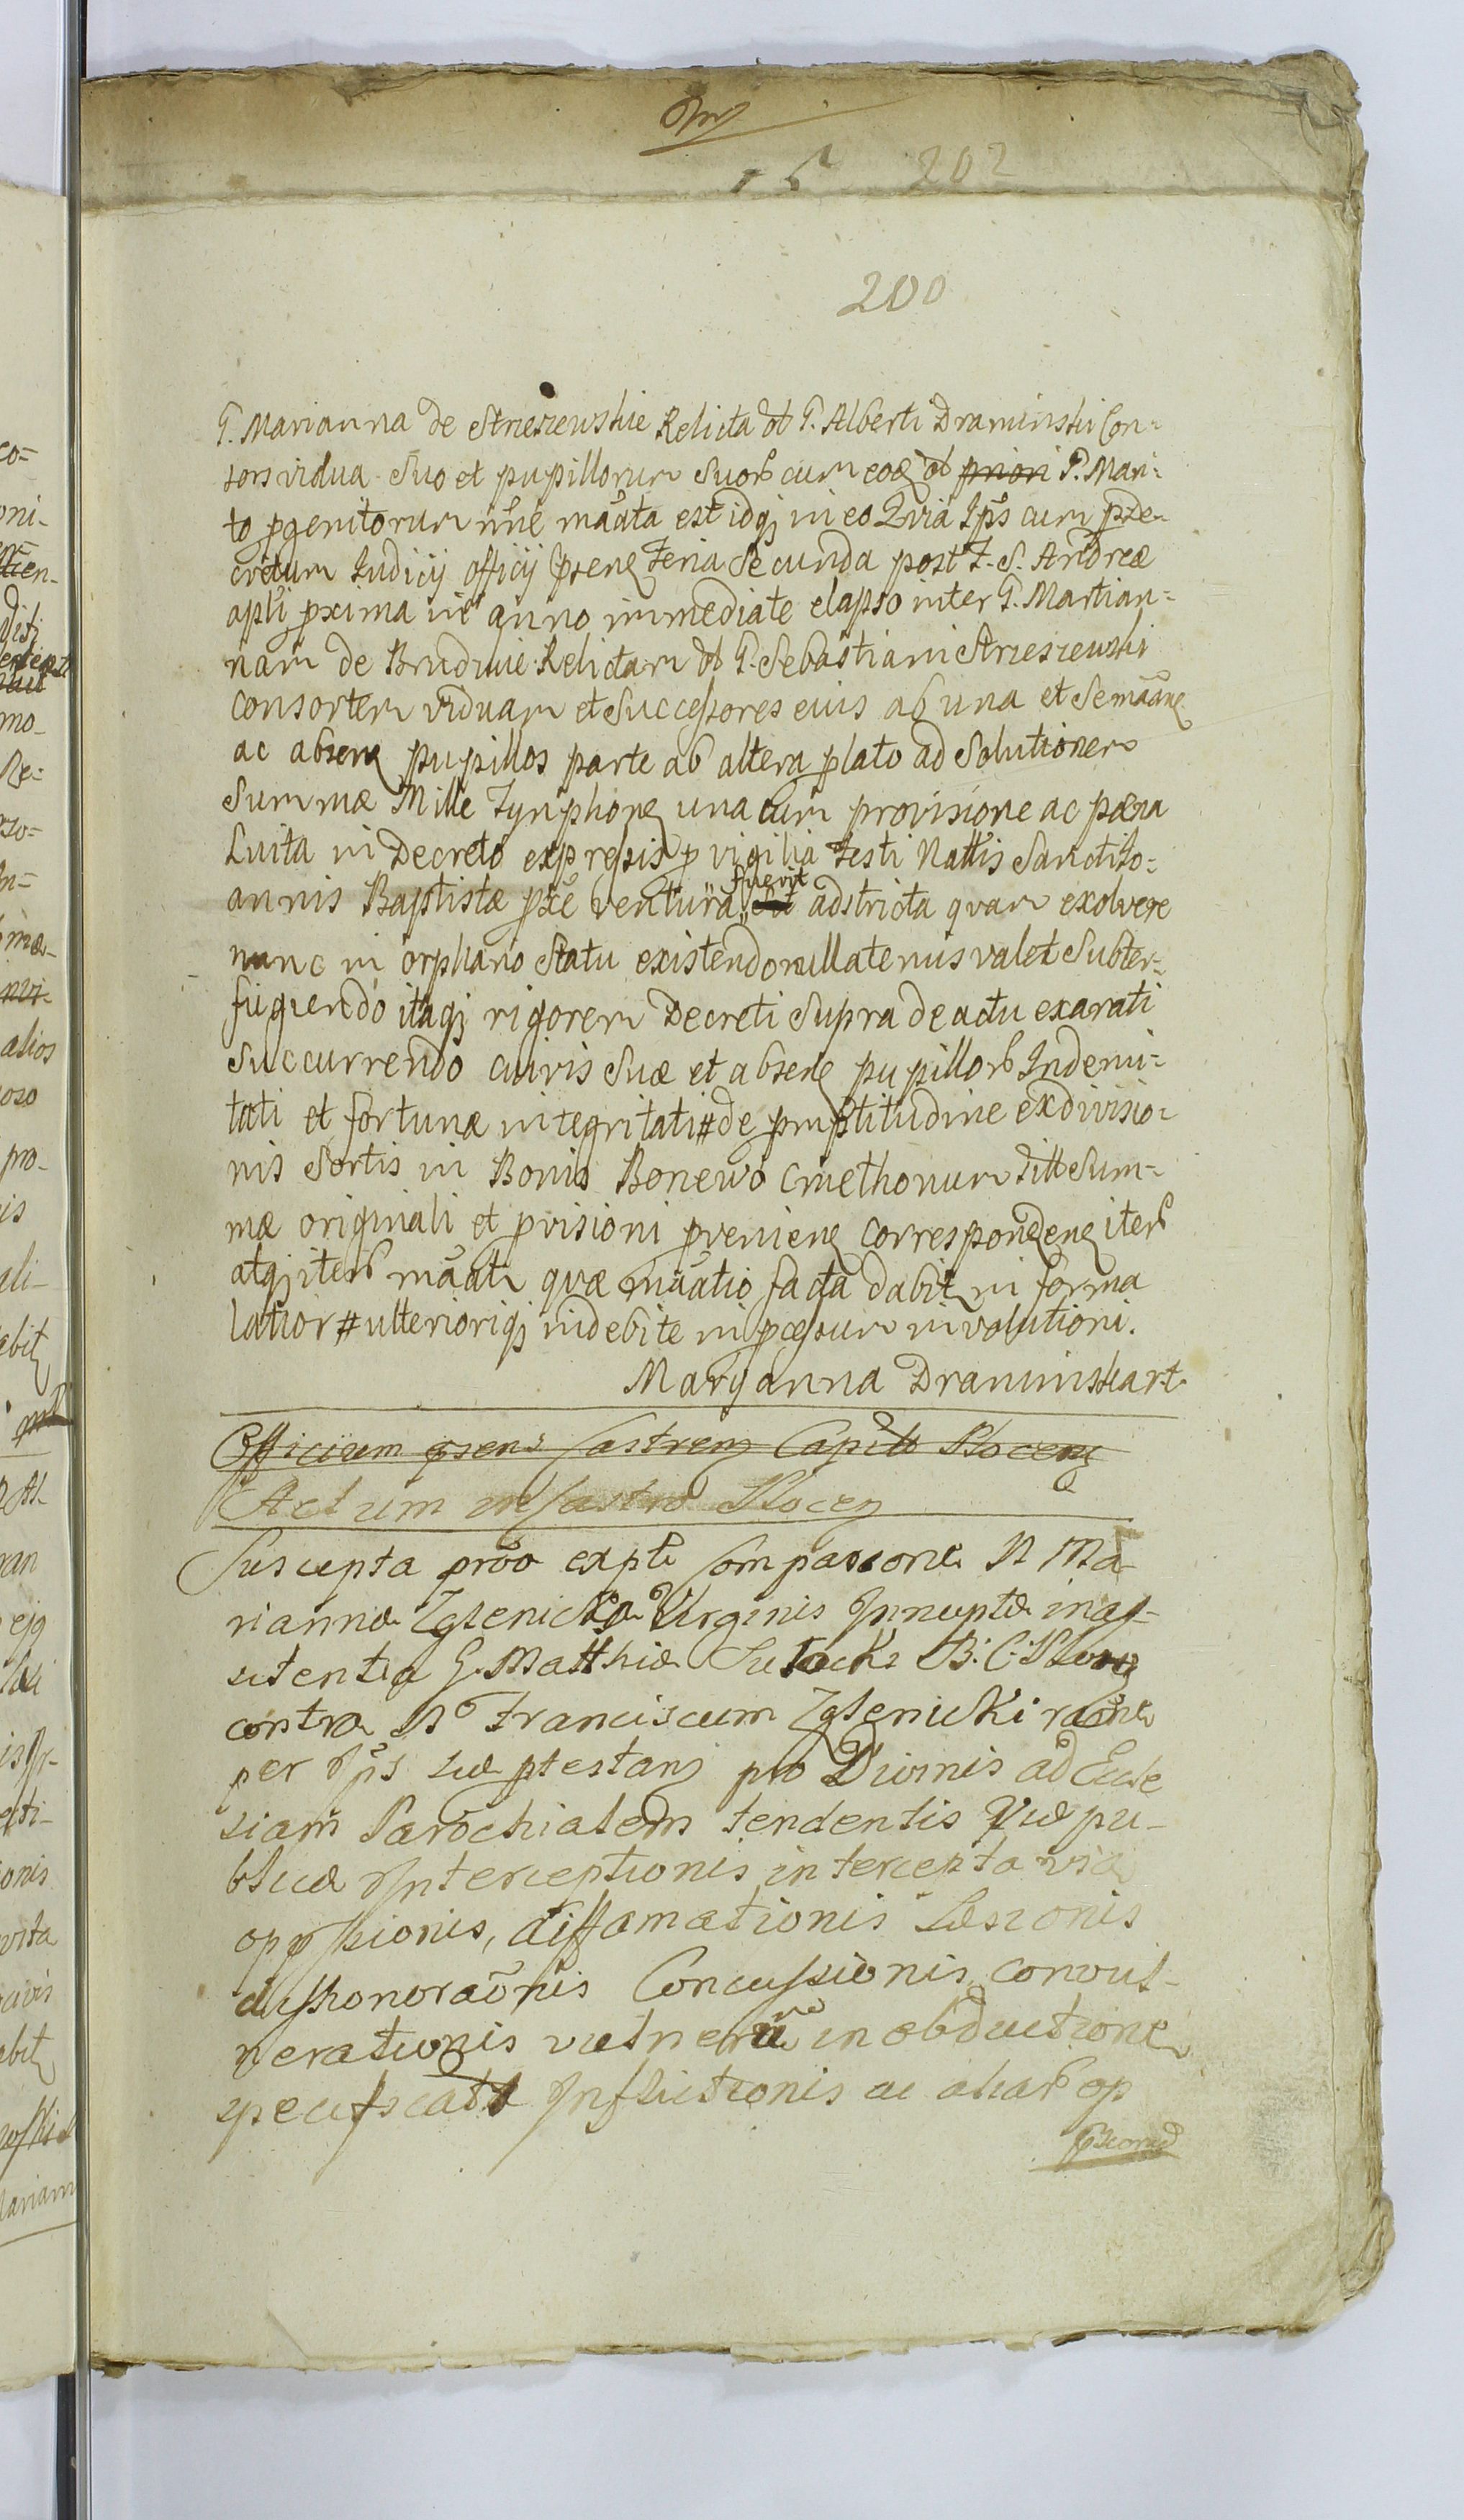 15 202
200
G. Marianna de Strzeszewskie Relicta olt G. Alberti Draminski Con-
sors vidua suo et pupillorum suorb cum eodē olt priori G. Mari-
to pgenitorum nñe mãata est idqz in eo Quia Ips cum p de-
cretum Judicij officij psenz Feria Secunda post F. S. Andreæ
apli pxima in anno immediate elapso inter G. Martian-
nam de Brudnie Relictam olt G. Sebastiani Strzeszewski
consortem viduam et Successores eius ab una et se mãanz
ac absenz pupillos parte ab altera plato ad Solutionem
Summæ Mille Tynphonz una cum provisione ac pæna
Luita in Decreto expressis p vigilia Festi Nattis Sancti Jo-
annis Baptistæ pxe ventura fuerit adstricta quam exolvere
nunc in orphano Statu existendo nullatenus valet Subter-
fugiendo itaqz rigorem Decreti Supra de actu exarati
Succurrendo cuivis Suæ et absenz pupillorb Indemni-
tati et fortunæ integritati # de pmptitudine exdivisio-
nis Sortis in Bonis Bonewo Cmethonum Titt Sum-
mæ originali et pvisioni pvenienz correspondenz iterb
atqz iterb mãatr quæ mãatio facta dabitr in forma
latiori # ulterioriqz indebite in pcessum involutioni.
Maryanna Draminska rt
Officium psens Castrenz Capitt Plocenz
Actum in Castro Plocenz
Suscepta prõo expti Comparione N Ma-
riannæ Zglenickæ Virginis Innuptæ in as-
sistentia G. Matthiæ Sulocki B: C: Plonz
contra N Franciscum Zglenicki raõne
per Ips suæ ptestanz pro Divinis ad Eccle
siam Parochialem tendentis Viæ pu-
blicæ Interceptionis in tercepta via
oppssionis, diffamationis Læsionis
dishonoraõnis Concussionis convul-
nerationis vulnerũ in obductione
specifscatr Inflictionis ac aliarb op